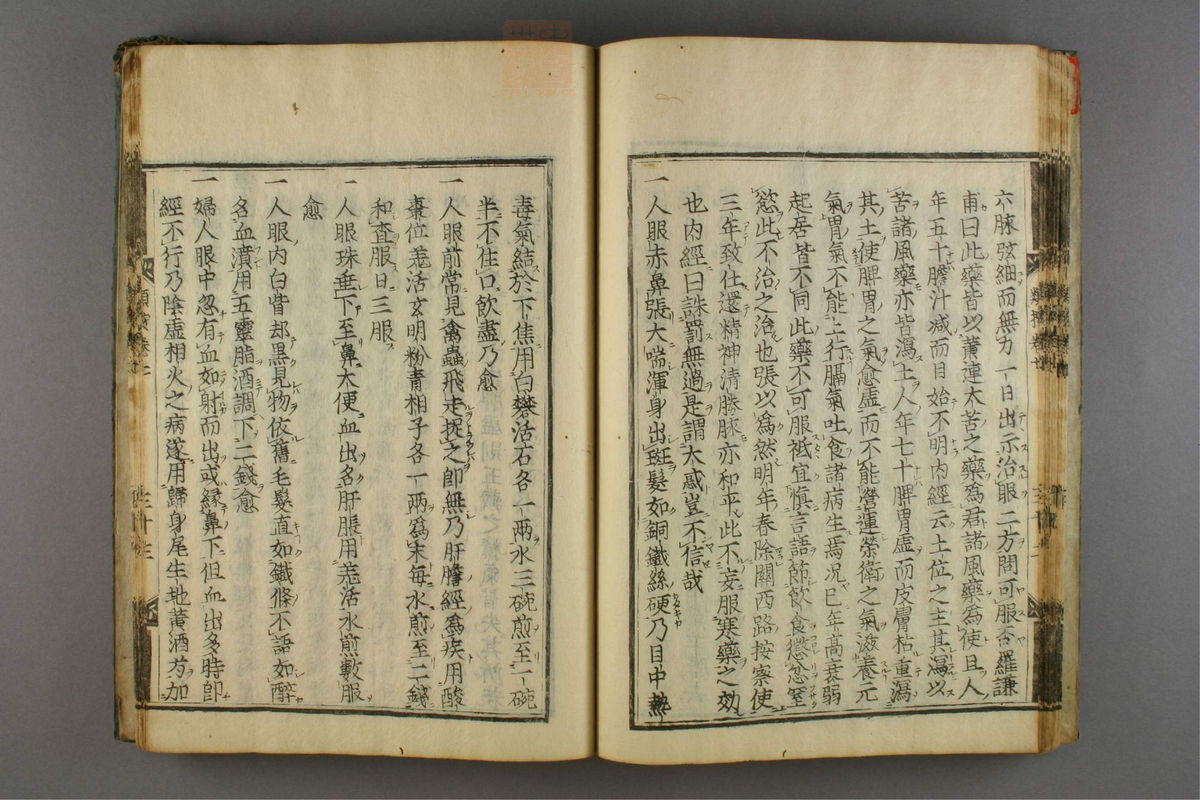 六脉弦細而無力一日出示治眼二方問可服否羅謙
甫曰此藥皆以黄連大苦之藥爲君諸風藥爲使且人
年五十膽汁減而目始不明内經云土位之主其瀉以
苦諸風藥亦皆瀉土人年七十脾胃虚而皮膚枯重瀉
其土使脾胃之氣愈虚而不能營運榮衛之氣滋養元
氣胃氣不能上行膈氣吐食諸病生焉况已年高衰弱
起居皆不同此藥不可服祗宜愼言語節飲食懲忿窒
慾此不治之治也張以爲然明年春除關西路按察使
三年致仕還精神清勝脉亦和平此不妄服寒藥之効
也内經曰誅罰無過是謂大惑豈不信哉
一人眼赤鼻張大喘渾身出斑髮如銅鐵絲硬乃目中熱
毒氣結於下焦用白礬活石各一兩水三碗煎至一碗
半不住口飲盡乃愈
一人眼前常見禽蟲飛走捉之卽無乃肝膽經爲疾用酸
棗位羌活玄明粉青相子各一兩爲末每水煎至二錢
和查服日三服
一人眼珠垂下至鼻大便血出名肝脹用羌活水煎數服
愈
一人眼内白眥却黒見物依舊毛髮直如鐵條不語如醉
名血潰用五靈脂酒調下二錢愈
一婦人眼中忽有血如射而出或緑鼻下但血出多時卽
經不行乃陰虚相火之病遂用歸身尾生地黄酒芍加